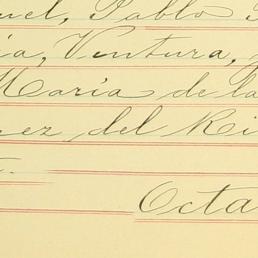 uel, Pablo
ia, Ventura,
Maria de la
ez del Ri
Octa